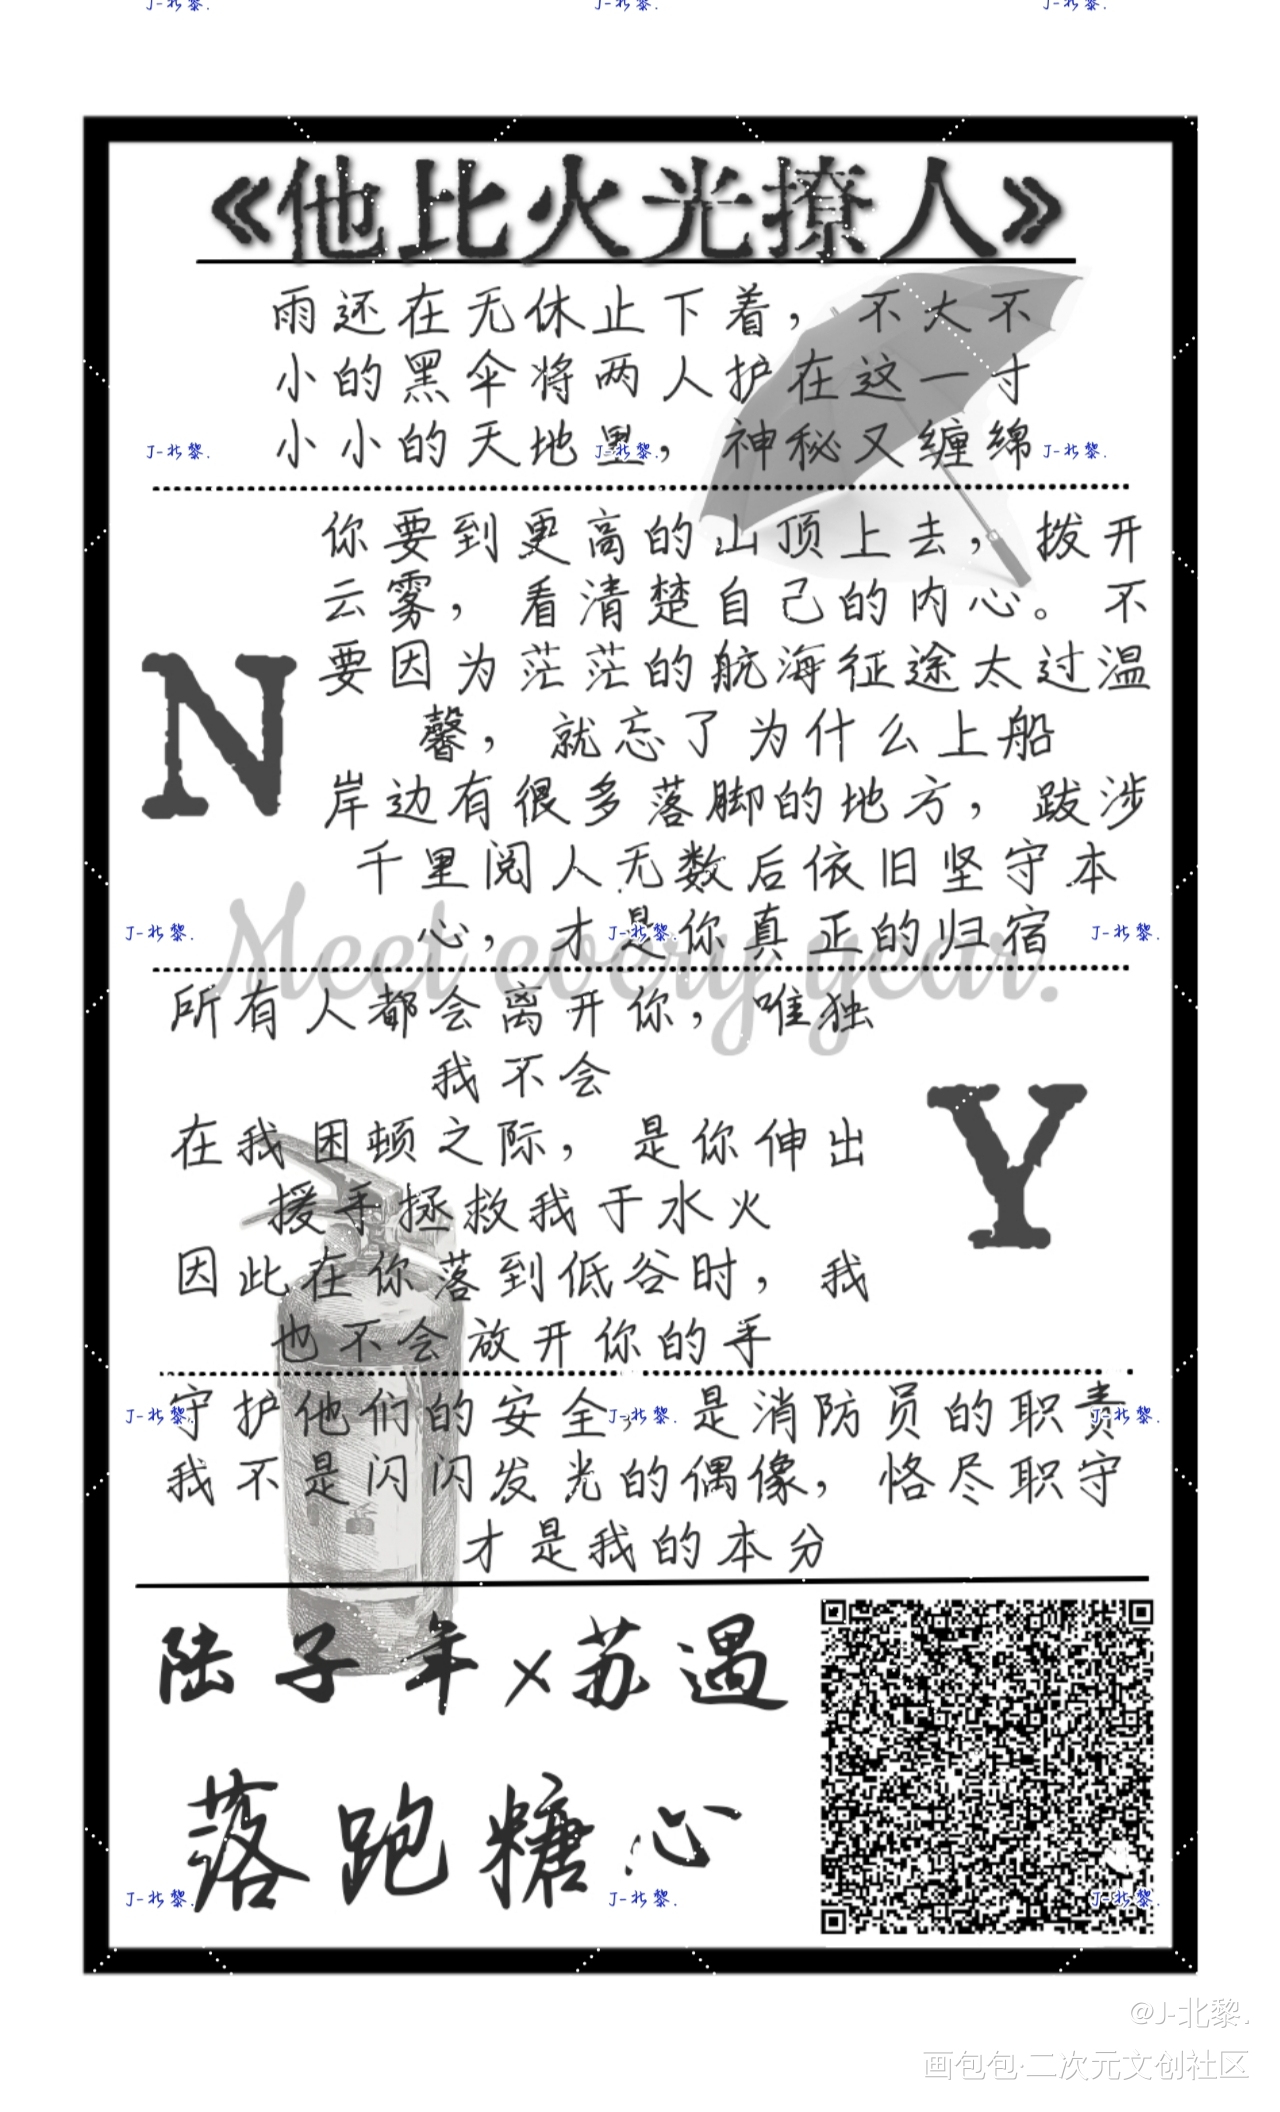 J-北黎. J-北黎. J-北黎.
《他比火光撩人》
雨还在无休止下着，不大不
小的黑伞将两人护在这一寸
小小的天地里，神秘又缠绵
J-北黎. J-北黎. J-北黎.
你要到更高的山顶上去，拨开
云雾，看清楚自己的内心。不
要因为茫茫的航海征途太过温
馨，就忘了为什么上船
岸边有很多落脚的地方，跋涉
千里阅人无数后依旧坚守本
心，才是你真正的归宿
N
Meet every year.
J-北黎. J-北黎. J-北黎.
所有人都会离开你，唯独
我不会
在我困顿之际，是你伸出
援手拯救我于水火
因此在你落到低谷时，我
也不会放开你的手
Y
守护他们的安全，是消防员的职责
J-北黎. J-北黎. J-北黎.
我不是闪闪发光的偶像，恪尽职守
才是我的本分
陆子年×苏遇
落跑糖心
J-北黎. J-北黎. J-北黎.
@J-北黎.
画包包·二次元文创社区